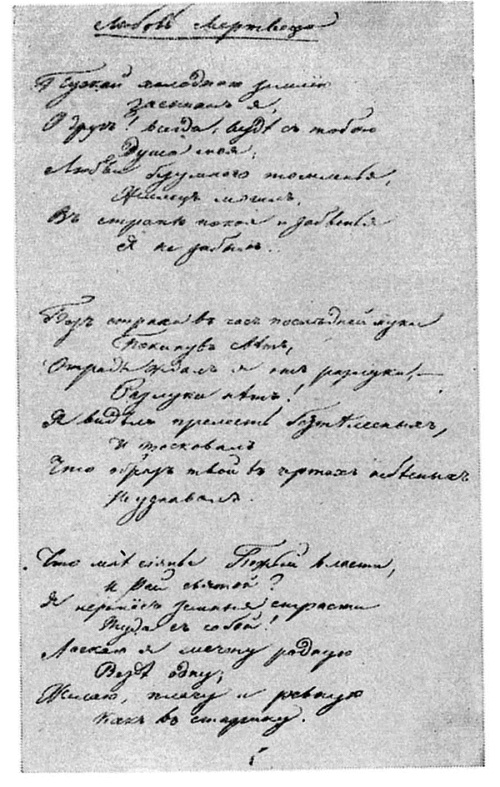 Любовь Мертвеца
Пускай холодною землею
Засыпанъ я,
О другъ! всегда, вездѣ съ тобою
Душа моя.
Любви безумнаго томленья,
Жилецъ могилъ,
Въ странѣ покоя и забвенья
Я не забылъ.
Безъ страха въ часъ послѣдней муки
Покинувъ свѣтъ,
Отрады ждалъ я отъ разлуки, —
Разлуки нѣтъ!
Я видѣлъ прелесть безтѣлесныхъ,
И тосковалъ
Что образъ твой въ чертахъ небесныхъ
Не узнавалъ.
Что мнѣ сіянье Божьей власти,
И Рай святой?
Я перенесъ земныя страсти
Туда съ собой!
Ласкаю я мечту родную
Вездѣ одну;
Желаю, плачу и ревную
Какъ въ старину.